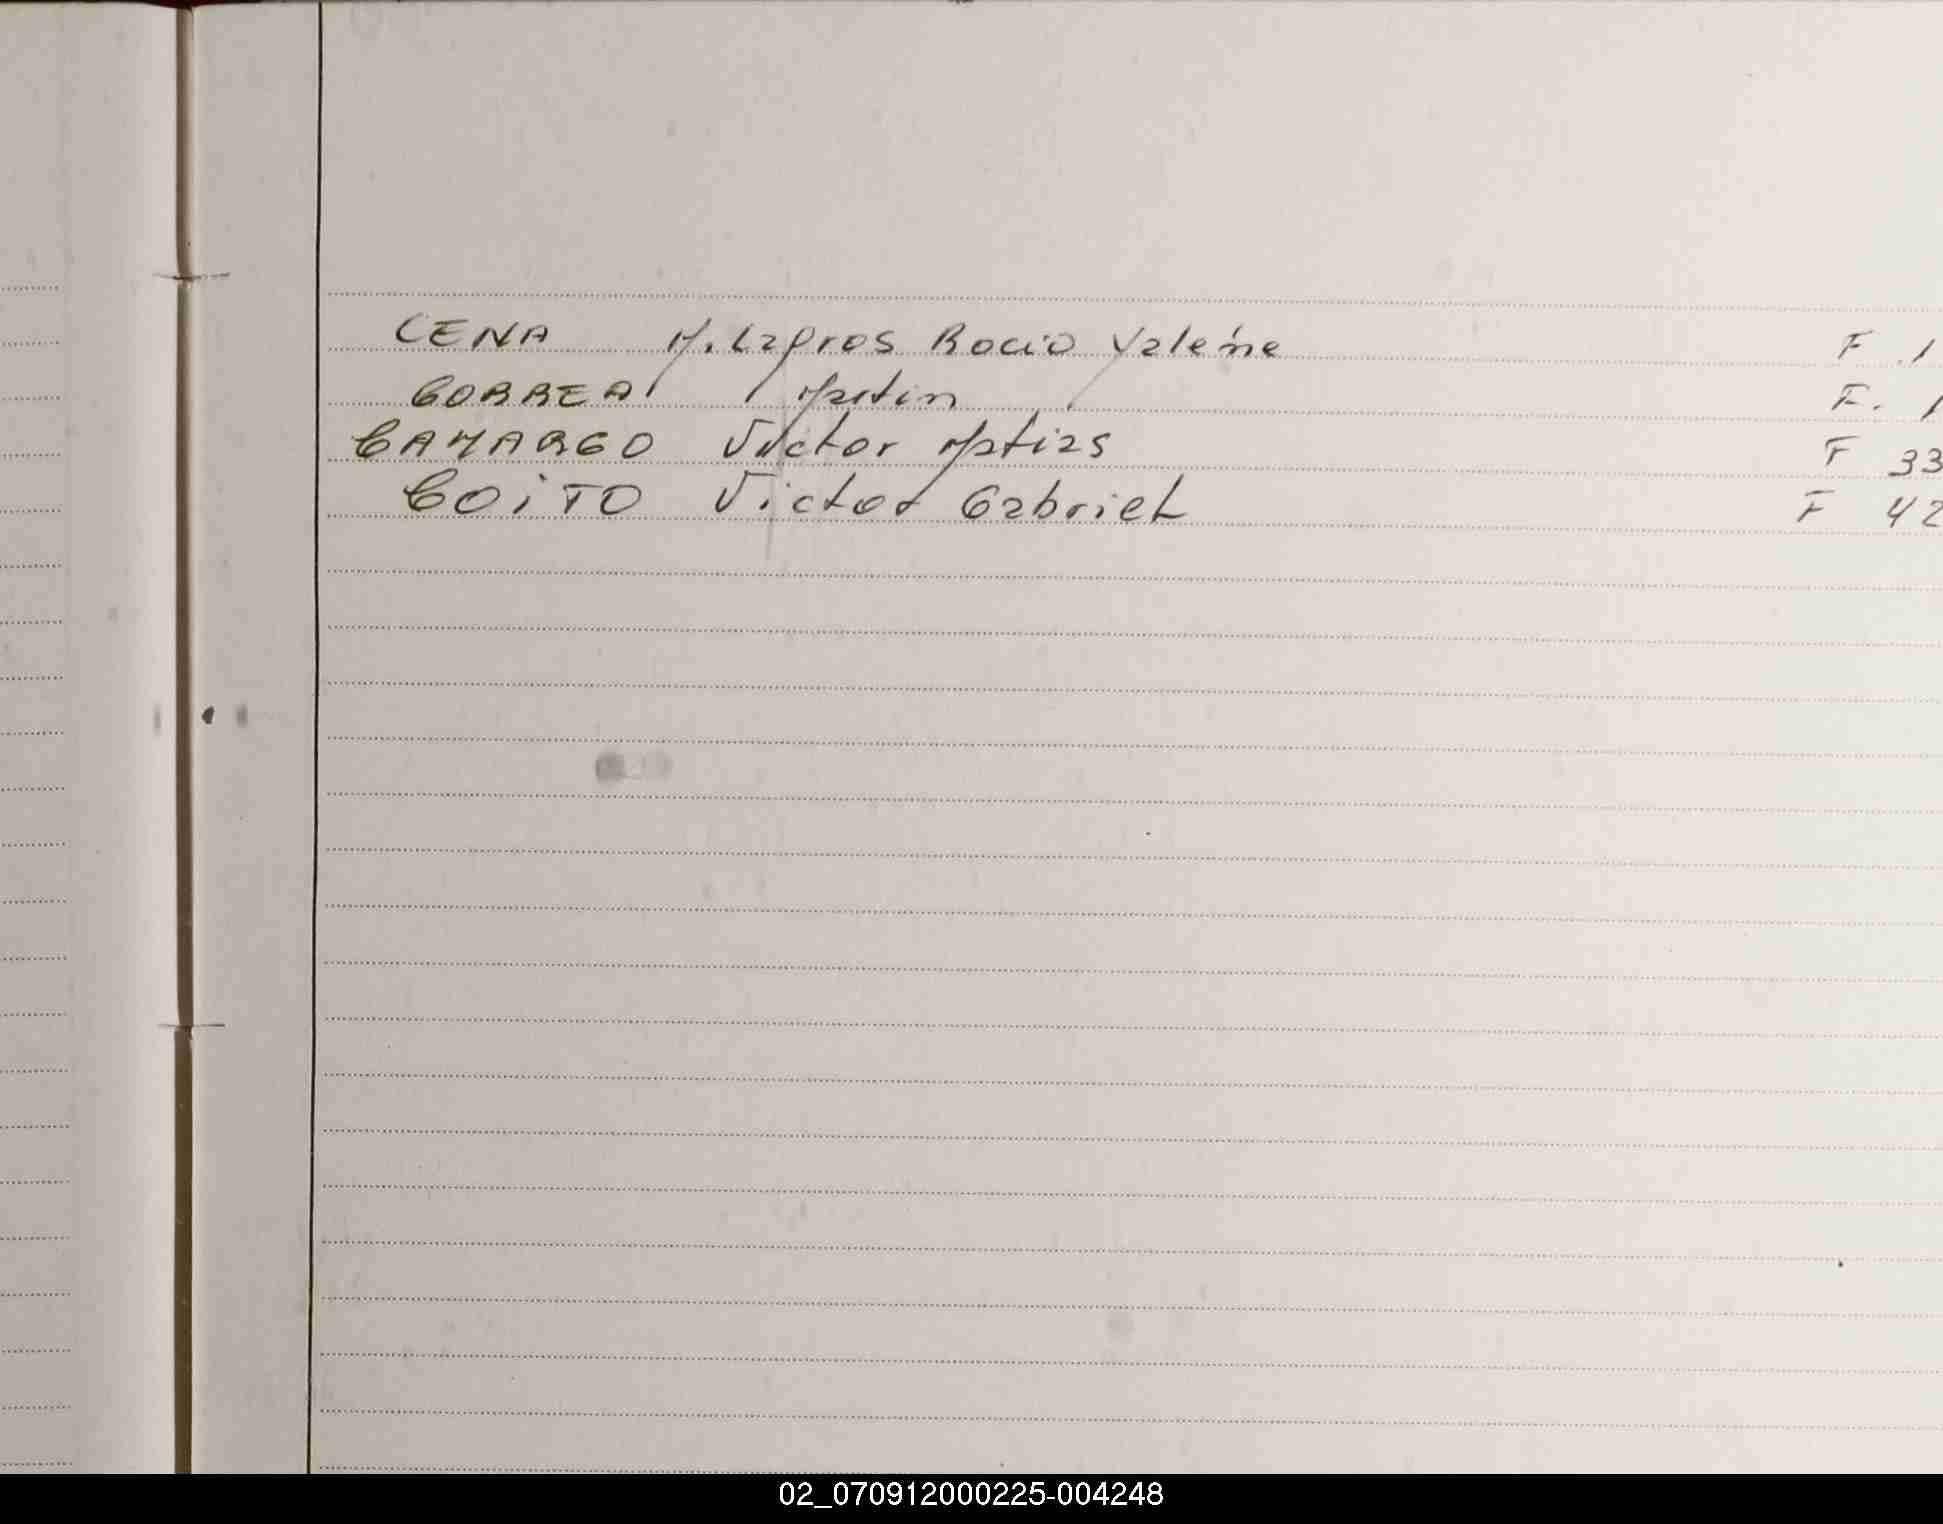 CENA Milagros Rocio Valeria F. 1
CORREA Martin F. 1
CAMARGO Victor Matias F 33
COiTO Victor Gabriel F 42
02_070912000225-004248